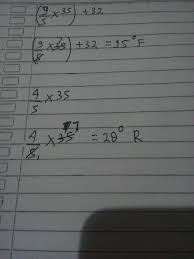 (9/5 x 35) + 32
(9/5 x 35 7) + 32 = 95° F
4/5 x 35
4/5 x 35 7 = 28° R